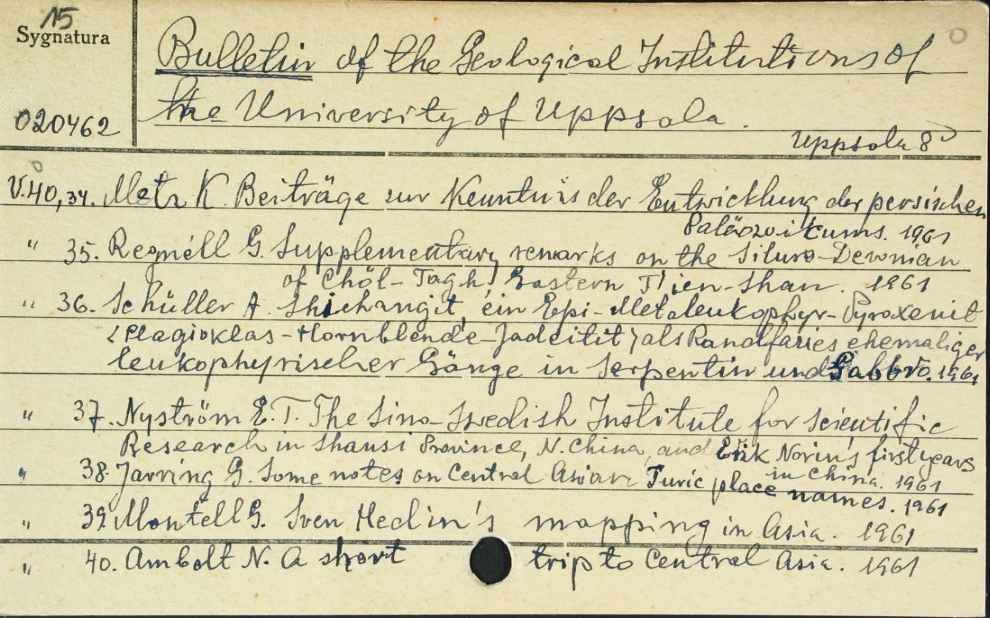 15
Sygnatura
020462
Bulletin of the Geological Institutions of
the University of Uppsala.
Uppsala 8°
V.40, 34. Metz K. Beiträge zur Kenntnis der Entwicklung der persischen
Paläozoikums. 1961
" 35. Regnéll G. Supplementary remarks on the Siluro-Devonian
of Chöl-Tagh, Eastern T'ien-Shan. 1961
" 36. Schüller A. Shichangit, ein Epi-Metaleukophyr-Pyroxenit
(Plagioklas-Hornblende-Jadeitit) als Randfazies ehemaliger
leukophyrischer Gänge in Serpentin und Gabbro. 1961
" 37. Nyström E.T. The Sino-Swedish Institute for Scientific
Research in Shansi Province, N. China, and Erik Norin's first years
in China. 1961
" 38. Jarring G. Some notes on Central Asian Turic place names. 1961
" 39. Montell G. Sven Hedin's mapping in Asia. 1961
" 40. Ambolt N. A short trip to Central Asia. 1961